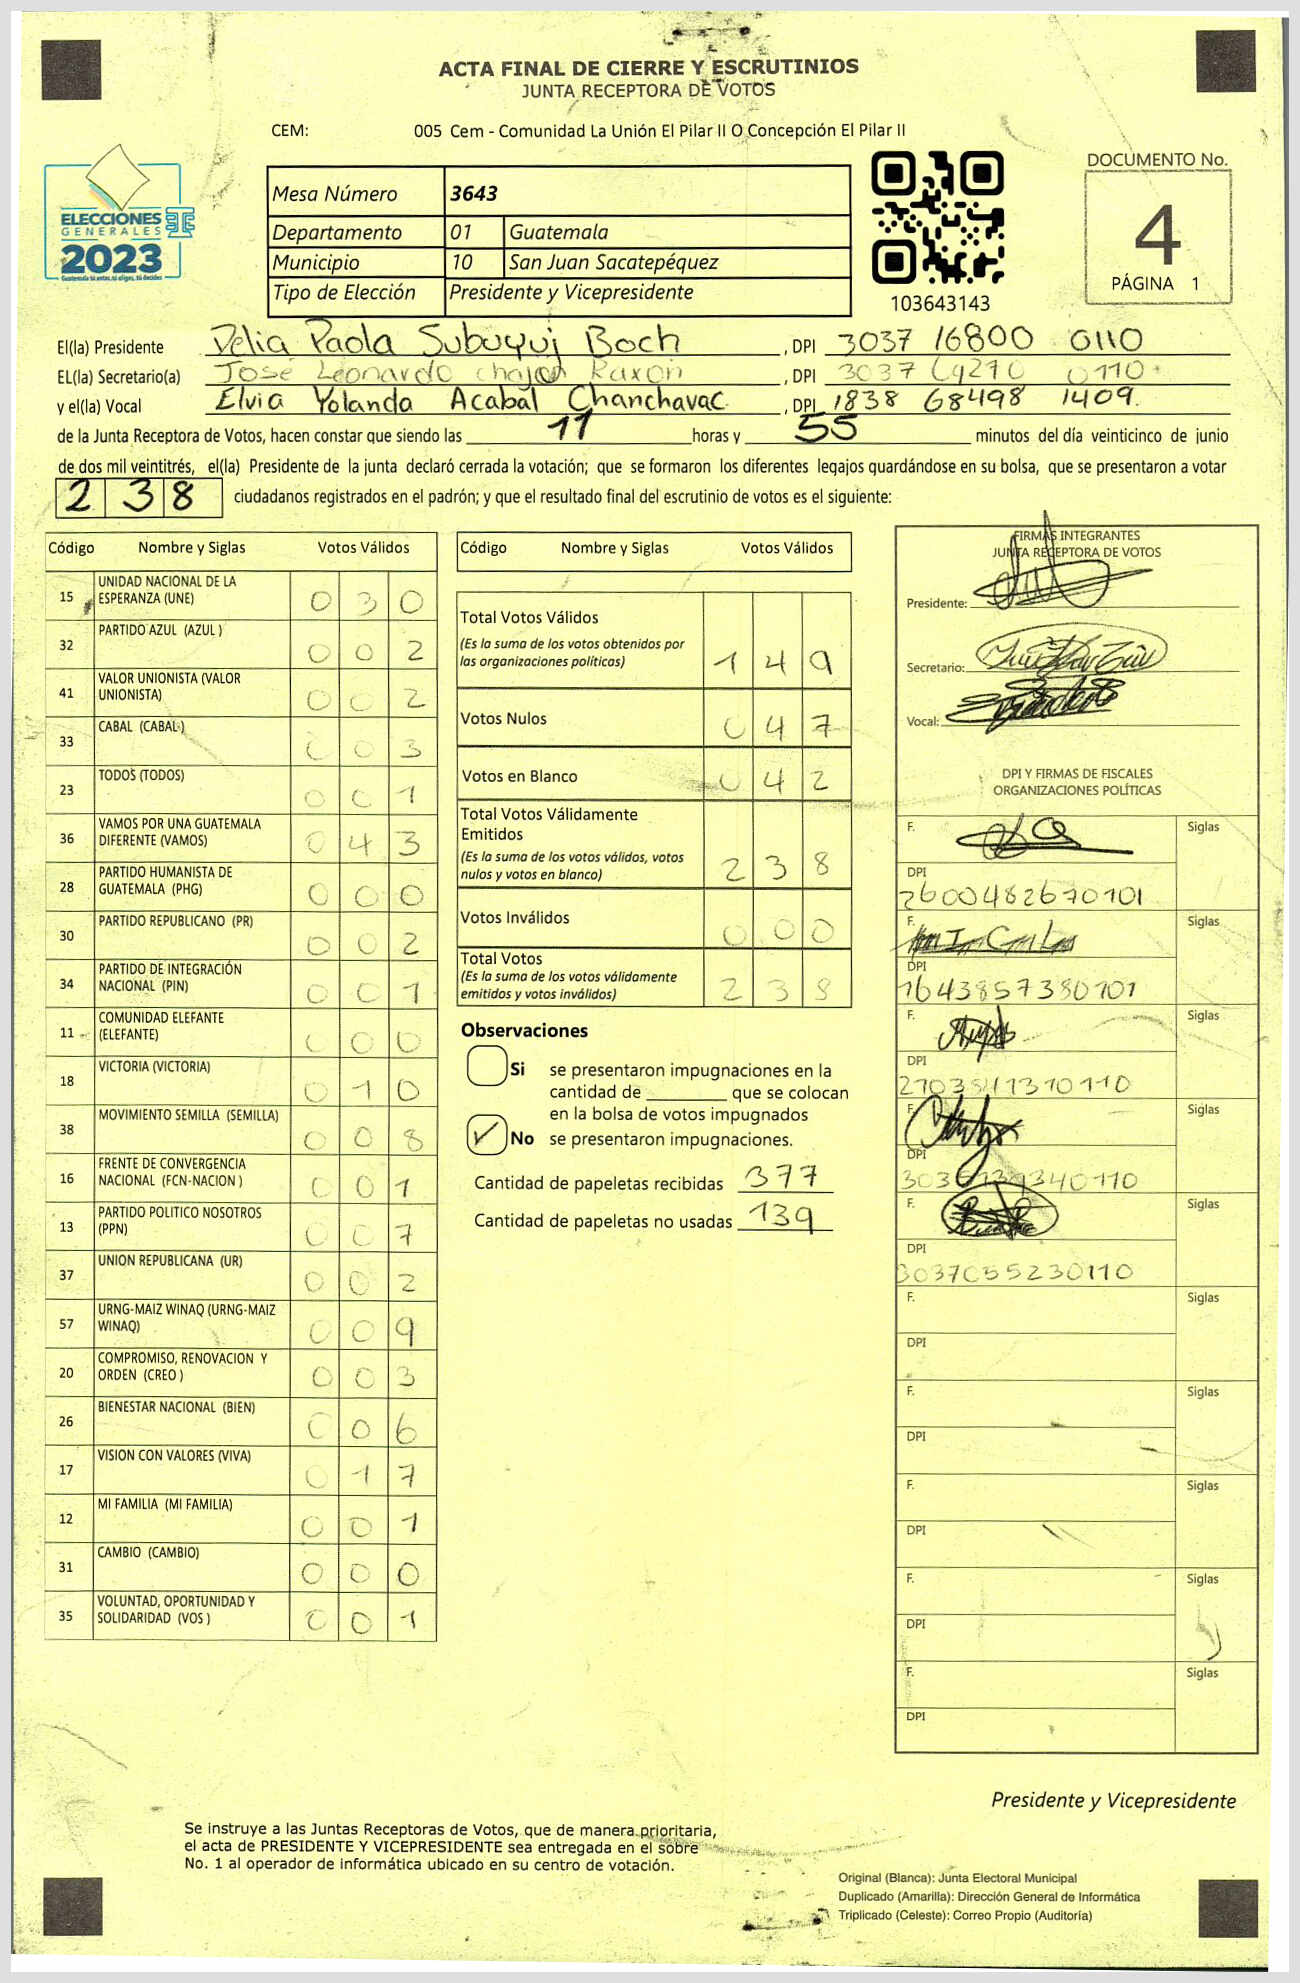 ACTA FINAL DE CIERRE Y ESCRUTINIOS
JUNTA RECEPTORA DE VOTOS
CEM: 005 Cem - Comunidad La Unión El Pilar II O Concepción El Pilar II
ELECCIONES
GENERALES
2023
Guatemala tú antes, tú eliges, tú decides
Mesa Número 3643
Departamento 01 Guatemala
Municipio 10 San Juan Sacatepéquez
Tipo de Elección Presidente y Vicepresidente
103643143
DOCUMENTO No.
4
PÁGINA 1
El(la) Presidente Delia Paola Subuyuj Boch , DPI 3037 16800 0110
EL(la) Secretario(a) José Leonardo chajon Raxón , DPI 3037 69270 0110
y el(la) Vocal Elvia Yolanda Acabal Chanchavac , DPI 1838 68498 1409
de la Junta Receptora de Votos, hacen constar que siendo las 17 horas y 55 minutos del día veinticinco de junio
de dos mil veintitrés, el(la) Presidente de la junta declaró cerrada la votación; que se formaron los diferentes legajos guardándose en su bolsa, que se presentaron a votar
238 ciudadanos registrados en el padrón; y que el resultado final del escrutinio de votos es el siguiente:
Código Nombre y Siglas Votos Válidos
15 UNIDAD NACIONAL DE LA ESPERANZA (UNE) 0 3 0
32 PARTIDO AZUL (AZUL ) 0 0 2
41 VALOR UNIONISTA (VALOR UNIONISTA) 0 0 2
33 CABAL (CABAL ) 0 0 3
23 TODOS (TODOS) 0 0 1
36 VAMOS POR UNA GUATEMALA DIFERENTE (VAMOS) 0 4 3
28 PARTIDO HUMANISTA DE GUATEMALA (PHG) 0 0 0
30 PARTIDO REPUBLICANO (PR) 0 0 2
34 PARTIDO DE INTEGRACIÓN NACIONAL (PIN) 0 0 1
11 COMUNIDAD ELEFANTE (ELEFANTE) 0 0 0
18 VICTORIA (VICTORIA) 0 1 0
38 MOVIMIENTO SEMILLA (SEMILLA) 0 0 8
16 FRENTE DE CONVERGENCIA NACIONAL (FCN-NACION ) 0 0 1
13 PARTIDO POLITICO NOSOTROS (PPN) 0 0 7
37 UNION REPUBLICANA (UR) 0 0 2
57 URNG-MAIZ WINAQ (URNG-MAIZ WINAQ) 0 0 9
20 COMPROMISO, RENOVACION Y ORDEN (CREO ) 0 0 3
26 BIENESTAR NACIONAL (BIEN) 0 0 6
17 VISION CON VALORES (VIVA) 0 1 7
12 MI FAMILIA (MI FAMILIA) 0 0 1
31 CAMBIO (CAMBIO) 0 0 0
35 VOLUNTAD, OPORTUNIDAD Y SOLIDARIDAD (VOS ) 0 0 1
Código Nombre y Siglas Votos Válidos
Total Votos Válidos
(Es la suma de los votos obtenidos por
las organizaciones políticas) 1 4 9
Votos Nulos 0 4 7
Votos en Blanco 0 4 2
Total Votos Válidamente
Emitidos
(Es la suma de los votos válidos, votos
nulos y votos en blanco) 2 3 8
Votos Inválidos 0 0 0
Total Votos
(Es la suma de los votos válidamente
emitidos y votos inválidos) 2 3 8
Observaciones
Si se presentaron impugnaciones en la
cantidad de ________ que se colocan
en la bolsa de votos impugnados
No se presentaron impugnaciones.
Cantidad de papeletas recibidas 377
Cantidad de papeletas no usadas 139
FIRMAS INTEGRANTES
JUNTA RECEPTORA DE VOTOS
Presidente:
Secretario:
Vocal:
DPI Y FIRMAS DE FISCALES
ORGANIZACIONES POLÍTICAS
F. Siglas
DPI
2600482670101
F. Siglas
DPI
1643857380101
F. Siglas
DPI
F. Siglas
DPI
F. Siglas
DPI
3037055230110
F. Siglas
DPI
F. Siglas
DPI
F. Siglas
DPI
F. Siglas
DPI
F. Siglas
DPI
Presidente y Vicepresidente
Se instruye a las Juntas Receptoras de Votos, que de manera prioritaria,
el acta de PRESIDENTE Y VICEPRESIDENTE sea entregada en el sobre
No. 1 al operador de informática ubicado en su centro de votación.
Original (Blanca): Junta Electoral Municipal
Duplicado (Amarilla): Dirección General de Informática
Triplicado (Celeste): Correo Propio (Auditoría)